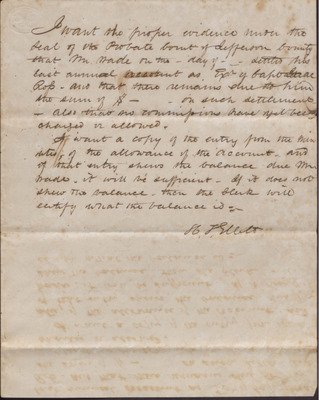 I want the proper evidence under the
seal of the Probate Court of Jefferson County
that Mr. Wade on the - day of - - settled his
last annual account as, Exr of
- and that there remains due to him
the sum of $ - - on such settlement
- also that no commissions have yet been
charged or allowed.
If I want a copy of the entry from the Min
utes, of the allowance of the Account, and
if that entry shews the balance due Mr.
Wade, it will be sufficient - If it does not
shew the balance, then the Clerk will
certify what the balance is -